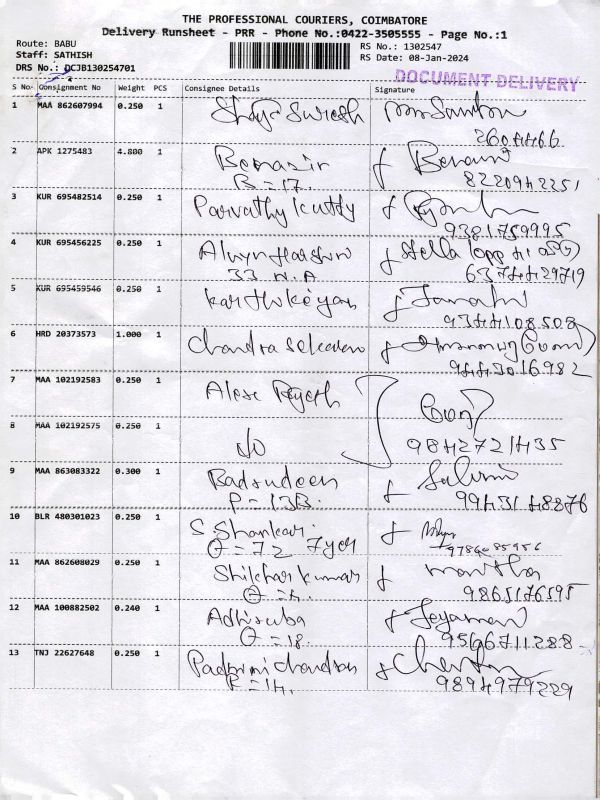 THE PROFESSIONAL COURIERS, COIMBATORE
Delivery Runsheet - PRR - Phone No.:0422-3505555 - Page No.:1
Route: BABU
Staff: SATHISH
DRS No.: DCJB130254701
RS No.: 1302547
RS Date: 08-Jan-2024
DOCUMENT DELIVERY
S No Consignment No Weight PCS Consignee Details Signature
1 MAA 862607994 0.250 1 Suresh
2 APK 1275483 4.800 1 Benasir
B = 17. 8220942251
3 KUR 695482514 0.250 1 Parvathy kutty
9381759995
4 KUR 695456225 0.250 1 Stella
33 N.A 6374429719
5 KUR 695459546 0.250 1 Karthikeyan
9344108508
6 HRD 20373573 1.000 1 Chandra Sekaran
9443016982
7 MAA 102192583 0.250 1
8 MAA 102192575 0.250 1 9842721435
9 MAA 863083322 0.300 1 Badrudeen
P = 13B. 9943148876
10 BLR 480301023 0.250 1 S. Shankar.
11 MAA 862608029 0.250 1 kumar
9865176595
12 MAA 100882502 0.240 1 Jeyamani
9566711288
13 TNJ 22627648 0.250 1
9894979229